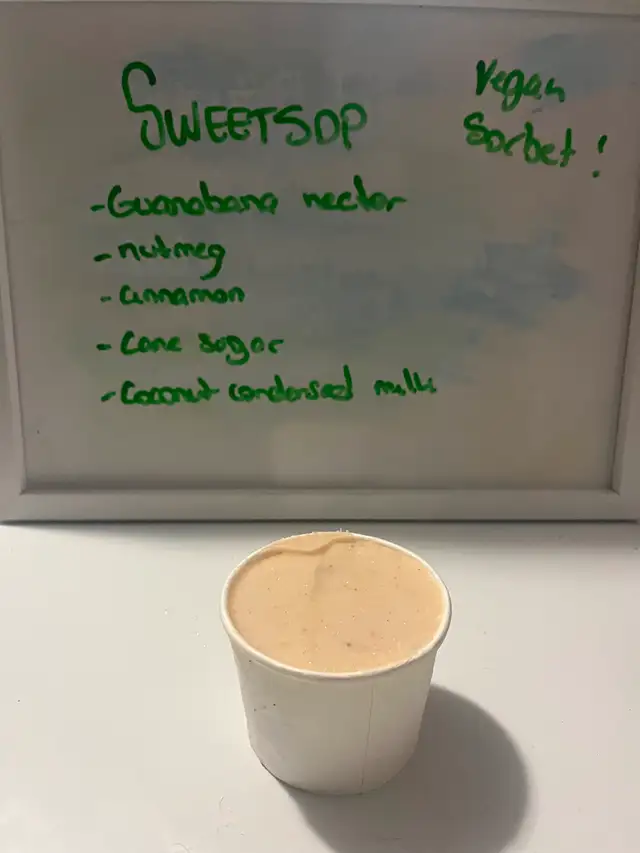 SWEETSOP
Vegan
Sorbet !
-Guanabana nectar
-nutmeg
-Cinnamon
-Cane sugar
-Coconut condensed milk